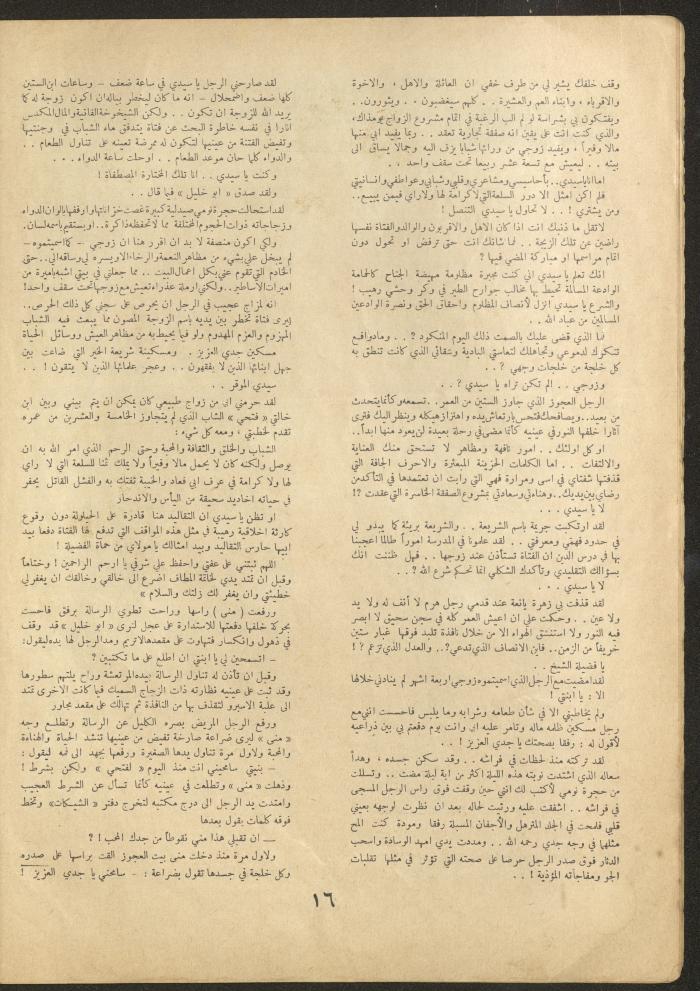 وقف خلفك يشير لي من طرف خفي ان العائلة والاهل ، والاخوة
والاقرباء ، وابناء العم والعشيرة . . كلهم سيغضبون . . ويثورون..
ويفتكون بي بشراسة لو لم الب الرغبة في اتمام مشروع الزواج يومذاك،
والذي كنت انت على يقين انه صفقة تجارية تعقد . . ربما يفيد ابي منها
مالا وفيراً ، ويفيد زوجي من ورائها شبابا يزف اليه وجمالا يساق الى
بيته . . ليعيش مع تسعة عشر ربيعا تحت سقف واحد . .
اما انا ياسيدي.. بأحاسيسي ومشاعري وقلبي وشبابي وعواطفي وانسانيتي
فلم اكن امثل الا دور السلعة التي لا كرامة لها ولا رأي فيمن يبيع..
ومن يشتري ! . . لا تحاول يا سيدي التنصل !
لا تقل ما ذنبك انت اذا كان الاهل والاقربون والوالد والفتاة نفسها
راضين عن تلك الزيجة . . فما شانك انت حتى ترفض او تحول دون
اتمام مراسمها او مباركة المضي فيها ؟
انك تعلم يا سيدي اني كنت مجبرة مظلومة مهيضة الجناح كالحمامة
الوادعة المسالمة تحيط بها مخالب جوارح الطير في وكر وحشي رهيب !
والشرع يا سيدي انزل لأنصاف المظلوم واحقاق الحق ونصرة الوادعين
المسالمين من عباد الله . .
فما الذي قضى عليك بالصمت ذلك اليوم المنكود ؟ . . ومادوافع
تنكرك لدموعي وتجاهلك لتعاستي البادية وشقائي الذي كانت تنطق به
كل خلجة من خلجات وجهي ؟ . .
وزوجي . . الم تكن تراه يا سيدي ؟ . .
الرجل العجوز الذي جاوز الستين من العمر. . تسمعه وكأنما يتحدث
من بعيد.. ويصافحك فتحس بارتعاش يده واهتزاز هيكله وينظر اليك فترى
آثارا خلفها النور في عينيه كأنما مضى في رحلة بعيدة لن يعود منها ابدا..
او كل اولئك . . امور تافهة ومظاهر لا تستحق منك العناية
والالتفات . . اما الكلمات الحزينة المبعثرة والاحرف الجافة التي
قذفتها شفتاي في اسى ومرارة فهي التي رابت ان تعتمدها في التأكد من
رضاي بين يديك.. وهنائي وسعادتي بمشروع الصفقة الخاسرة التي عقدت ؟!
لا يا سيدي . . .
لقد ارتكبت جريمة باسم الشريعة . . والشريعة بريئة كما يبدو لي
في حدود فهمي ومعرفتي . . لقد علمونا في المدرسة اموراً طالما اعجبنا
بها في درس الدين ان الفتاة تستأذن عند زوجها . . فهل ظننت انك
بسؤالك التقليدي وتأكدك الشكلي انما تحكم شرع الله ؟. .
لا يا سيدي . . .
لقد قذفت بي زهرة يانعة عند قدمي رجل هرم لا أنف له ولا يد
ولا عين . . وحكمت علي ان اعيش العمر كله في سجن سحيق لا ابصر
فيه النور ولا استنشق الهواء الا من خلال نافذة تلبد فوقها غبار ستين
خريفاً من الزمن. . فاين الانصاف الذي تدعي؟.. والعدل الذي تزعم ؟ !
يا فضيلة الشيخ . .
لقد امضيت مع الرجل الذي اسميتموه زوجي اربعة اشهر لم يناد​ني خلالها
الا : يا ابنتي !
ولم يخاطبني الا في شأن طعامه وشرابه وما يلبس فاحسست انني مع
رجل مسكين ظلمه ماله وتآمر عليه ابي وانت يوم دفعتم بي بين ذراعيه
لأقول له : رفقا بصحتك يا جدي العزيز ! . .
لقد تركته منذ لحظات في فراشه . . وقد سكن جسده ، وهدأ
سعاله الذي اشتدت نوبته هذه الليلة اكثر من اية ليلة مضت . . وتسللت
من حجرة نومي لأكتب لك انني حين وقفت فوق راس الرجل المسجى
في فراشه . . اشفقت عليه ورثيت لحاله بعد ان نظرت لوجهه بعيني
قلبي فلمحت في الجلد المترهل والأجفان المسبلة رفقا ومودة كنت المح
مثلها في وجه جدي رحمه الله . . ومددت يدي امهد الوسادة واسحب
الدثار فوق صدر الرجل حرصا على صحته التي تؤثر في مثلها تقلبات
الجو ومفاجآته المؤذية ! . .
لقد صارحني الرجل يا سيدي في ساعة ضعف – وساعات ابن الستين
كلها ضعف واضمحلال – انه ما كان ليخطر بباله ان اكون زوجة له كما
يريد الله للزوجة ان تكون . . ولكن الشيخوخة الفانية والمال المكدس
اثارا في نفسه خاطرة البحث عن فتاة يتدفق ماء الشباب في وجنتيها
وتفيض الفتنة من عينيها لتكون له ممرضة تعينه على تناول الطعام . .
والدواء كلما حان موعد الطعام . . اوحلت ساعة الدواء . . .
وكنت يا سيدي . . انا تلك المختارة المصطفاة !
ولقد صدق « ابو خليل » فيما قال . .
لقد استحالت حجرة نومي صيدلية كبيرة غصت خزاناتها ورفوفها بالوان الدواء
وزجاجاته ذوات الحجوم المختلفة مما لا تحفظه ذاكرة.. او يستقيم باسمه لسان.
ولكي اكون منصفة لا بد ان اقرر هنا ان زوجي – كما اسميتموه –
لم يبخل علي بشيء من مظاهر النعمة والرخاء الا ويسره لي وساقه الي.. حتى
الخادم التي تقوم عني بكل اعمال البيت . . مما جعلني في بيتي اشبه بأميرة من
اميرات الأساطير.. ولكني ارملة عذراء تعيش مع زوجها تحت سقف واحد!
انه لمزاج عجيب في الرجل ان يحرص على سجني كل ذلك الحرص..
ليرى فتاة تخطر بين يديه باسم الزوجة المصون مما يبعث فيه الشباب
المهزوم والعزم المهدوم ولو فيما يحيط به من مظاهر العيش ووسائل الحياة
مسكين جدي العزيز . . ومسكينة شريعة الخير التي ضاعت بين
جهل ابنائها الذين لا يفقهون . . وعجز علمائها الذين لا يتقون ! . .
سيدي الموقر . .
لقد حرمني ابي من زواج طبيعي كان يمكن ان يتم بيني وبين ابن
خالتي « فتحي » الشاب الذي لم يتجاوز الخامسة والعشرين من عمره
تقدم لخطبتي ، ومعه كل شيء :
الشباب والخلق والثقافة والمحبة وحتى الرحم الذي امر الله به ان
يوصل ولكنه كان لا يحمل مالا وفيراً ولا يملك ثمنا للسلعة التي لا راي
لها ولا كرامة في عرف ابي فعاد والخيبة تفتك به والفشل القاتل يحفر
في حياته اخاديد سحيقة من اليأس والاندحار
او تظن يا سيدي ان التقاليد هنا قادرة على الحيلولة دون وقوع
كارثة اخلاقية رهيبة في مثل هذه المواقف التي تدفع لها الفتاة دفعا بيد
ابيها حارس التقاليد وبيد امثالك يا مولاي من حماة الفضيلة !
اللهم ثبتني على عفتي واحفظ علي شرفي يا ارحم الراحمين ! وختاماً
وقبل ان تمتد يدي لخاتمة المطاف اضرع الى خالقي وخالقك ان يغفر لي
خطيئتي وان يغفر لك زلتك والسلام »
ورفعت ( منى ) راسها وراحت تطوي الرسالة برفق فاحست
بحركة خلفها دفعتها للاستدارة على عجل لترى « ابو خليل » قد وقف
في ذهول وانكسار فتهاوت على مقعدها لاتريم ومد الرجل لها يده ليقول:
– اتسمحين لي يا ابنتي ان اطلع على ما تكتبين ؟
وقبل ان تأذن له تناول الرسالة بيده المرتعشة وراح يلتهم سطورها
وقد ثبت على عينيه نظارته ذات الزجاج السميك فيما كانت الاخرى تمتد
الى علبة الاسبرو لتقذف بها من النافذة ثم تهالك على مقعد مجاور
ورفع الرجل المريض بصره الكليل عن الرسالة وتطلع وجه
« منى » ليرى ضراعة صارخة تفيض من عينيها تنشد الحياة والهناءة
والمحبة ولاول مرة تناول يدها الصغيرة ورفعها بجهد الى فمه ليقول :
– بنيتي سامحيني انت منذ اليوم « لفتحي » ولكن بشرط !
وذهلت « منى » وتطلعت في عينيه كأنما تسأل عن الشرط العجيب
وامتدت يد الرجل الى درج مكتبه لتخرج دفتر « الشيكات » وتخط
فوقه كلمات بقول بعدها
— ان تقبلي هذا مني نقوطاً من جدك المحب ! ؟
ولاول مرة منذ دخلت منى بيت العجوز القت براسها على صدره
وكل خلجة في جسدها تقول بضراعة : – سامحني يا جدي العزيز !
١٦